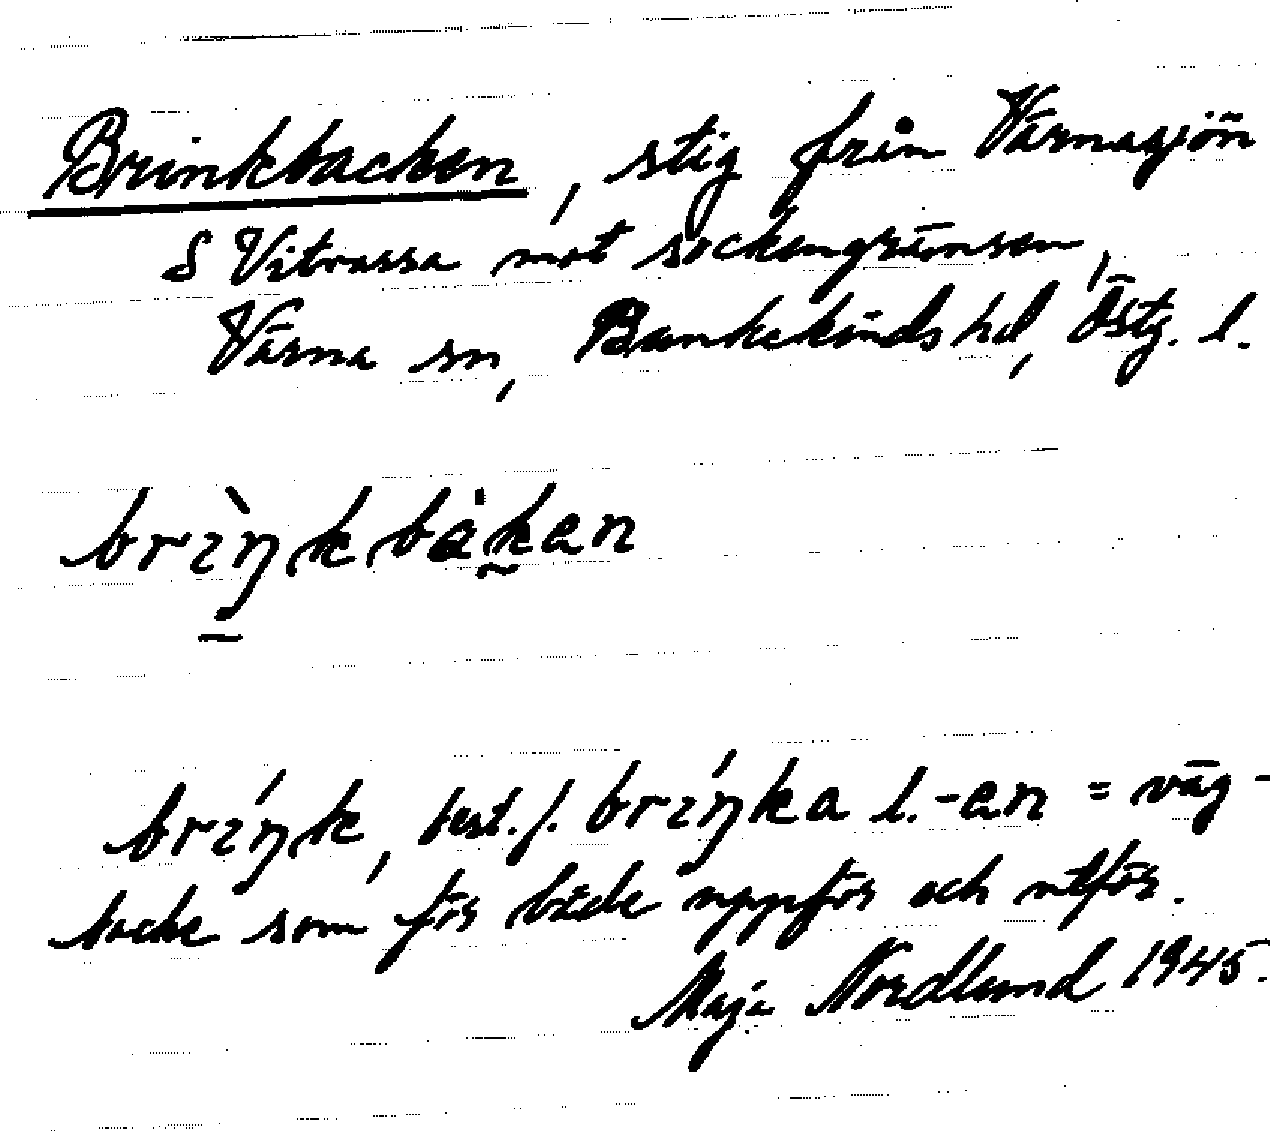 Brinkbacken, stig från Värnasjön
S Vitvassa mot sockengränsen,
Värna sn, Bankekinds hd, Östg. l.
brìŋkbákan
bríŋk, best. f. bríŋka l. -an = väg-
backe som för både uppför och utför.
Maja Nordlund 1945.